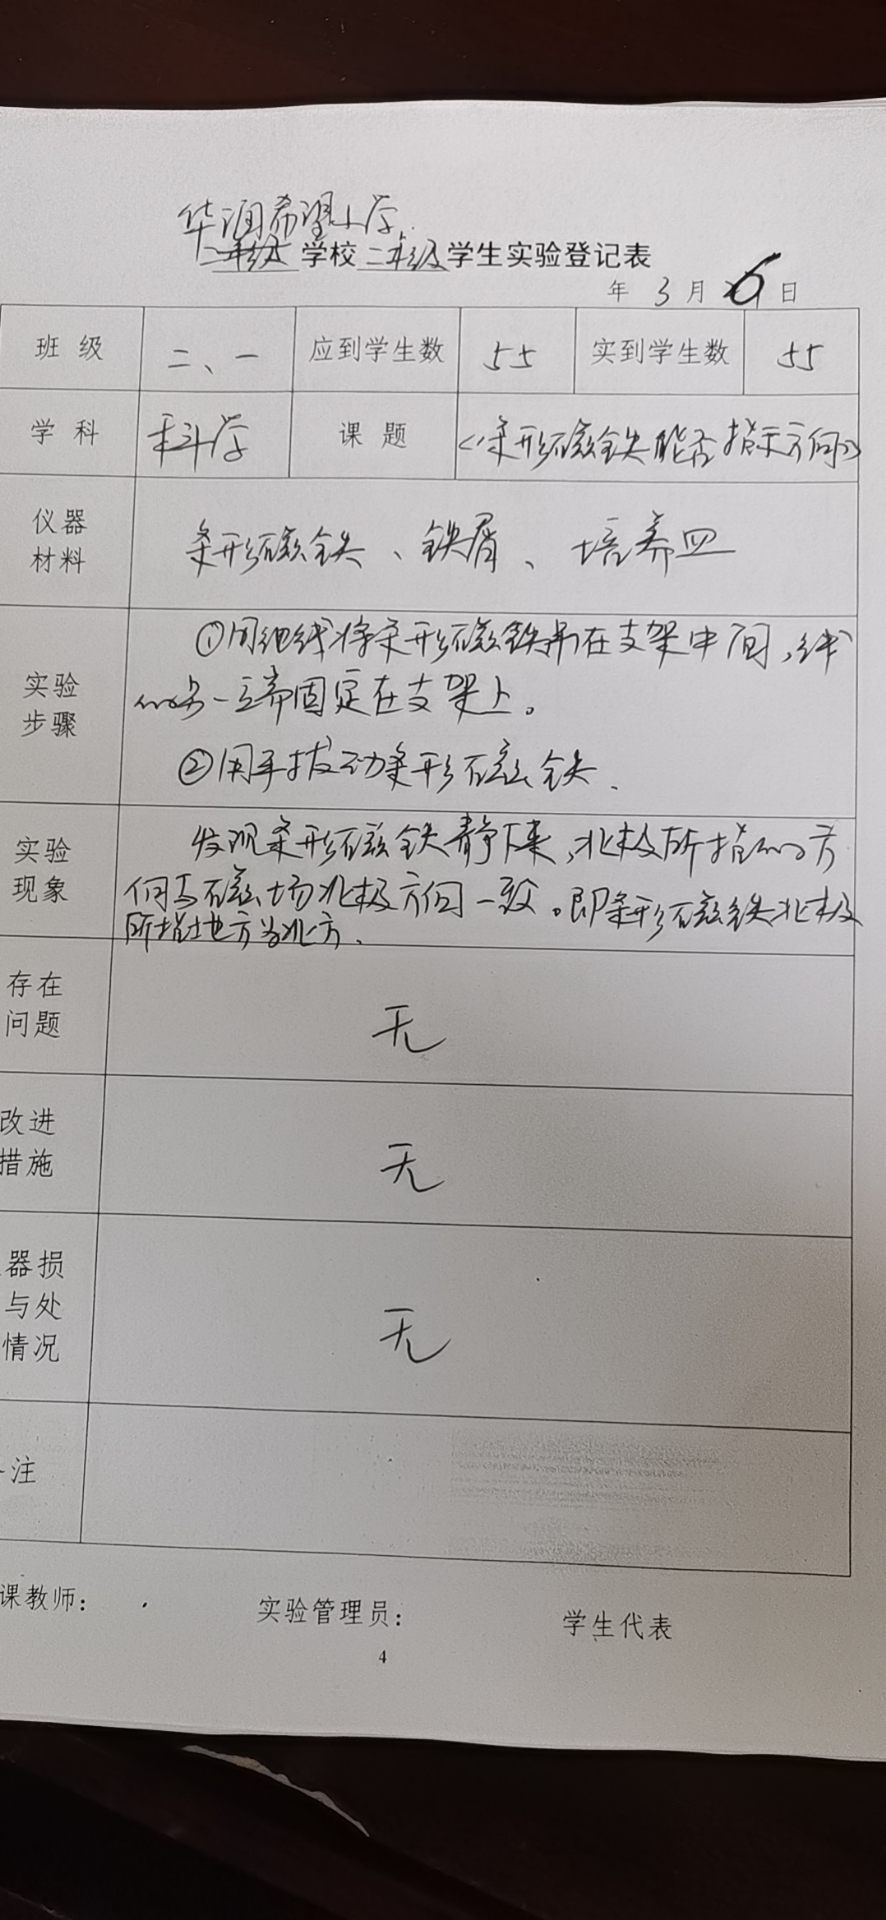 华润希望小学
二年级 学校 二年级 学生实验登记表
年 3 月 6 日
班 级 二、一 应到学生数 55 实到学生数 55
学 科 科学 课 题 《条形磁铁能否指示方向》
仪器
材料
条形磁铁、铁屑、培养皿
实验
步骤
①用细线将条形磁铁吊在支架中间,线
的另一端固定在支架上。
②用手拔动条形磁铁.
实验
现象
发现条形磁铁静下来,北极所指的方
向与磁场北极方向一致。即条形磁铁北极
所指地方为北方.
存在
问题
无
改进
措施
无
器损
与处
情况
无
注
课教师: 实验管理员: 学生代表
4